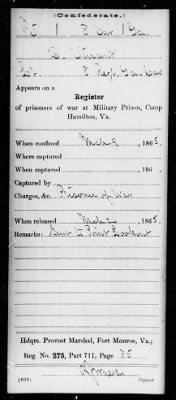 (Confederate.)
8 Cav Ga.
Appears on a
Register
of prisoners of war at Military Prison, Camp
Hamilton, Va.
When confined Mch 9, 1865.
Where captured
When captured , 186 .
Captured by
Charges, &c. Prisoner of War
When released , 1865.
Remarks: Sent to Point Lookout
Hdqrs. Provost Marshal, Fort Monroe, Va.;
Reg. No. 275, Part 711, Page 85
Copyist.